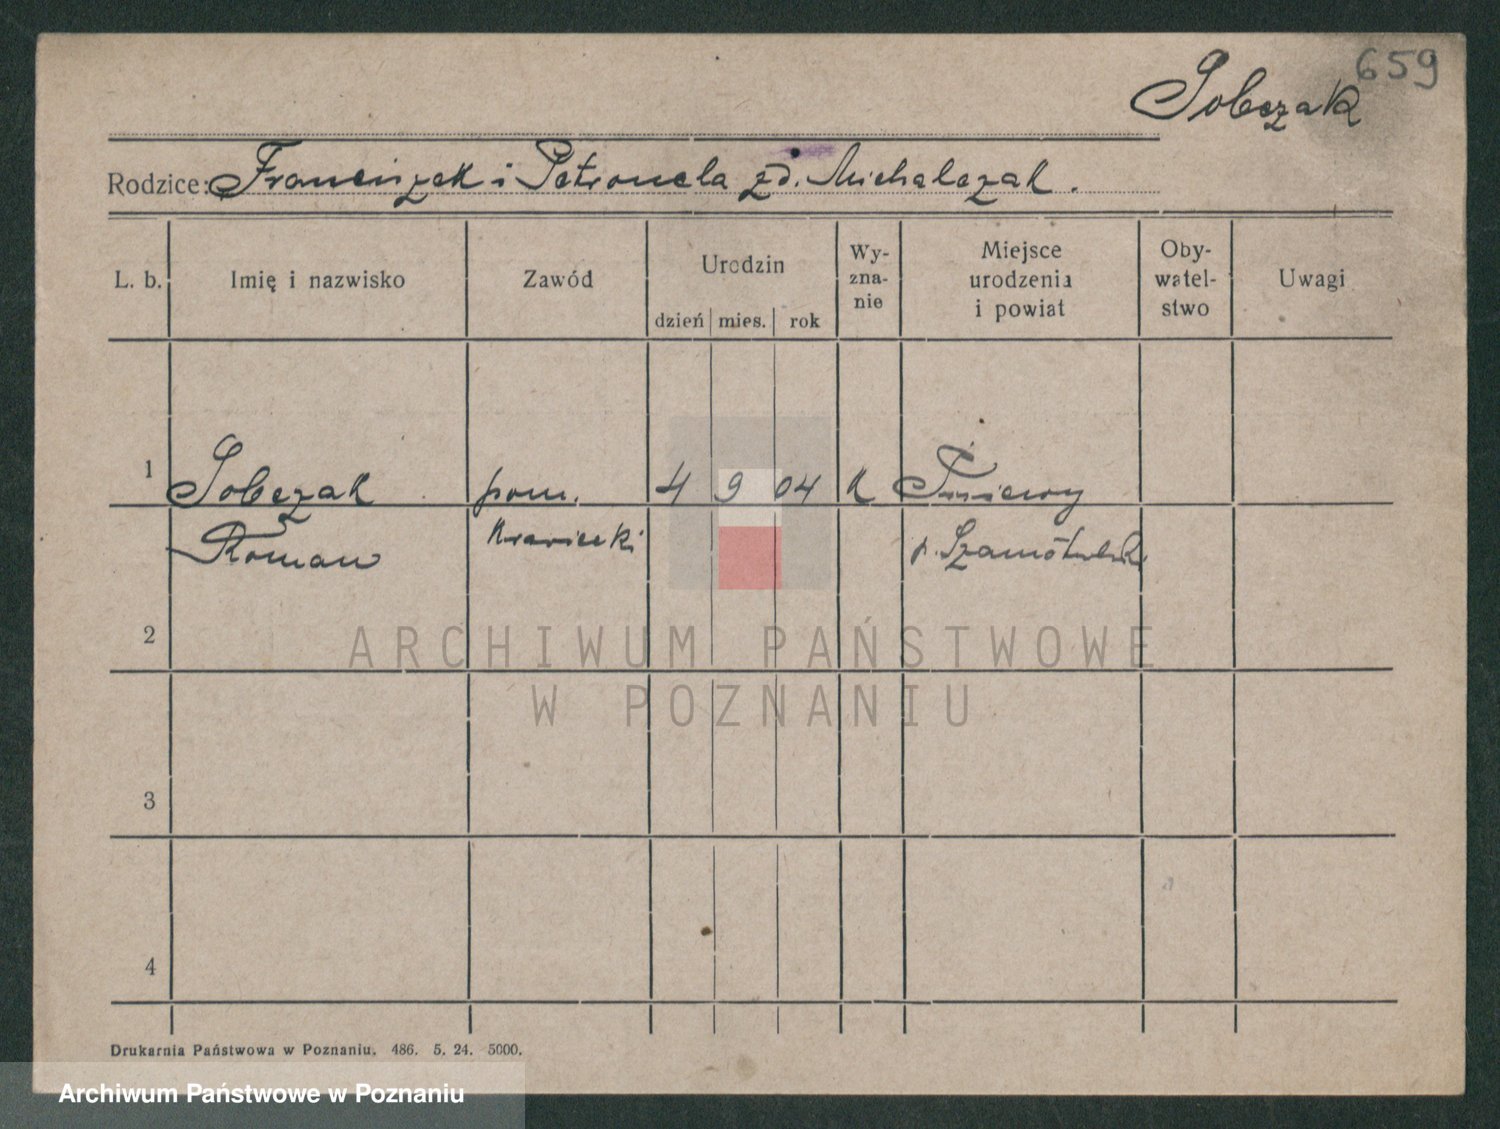 659
Sobczak
Rodzice: Franciszek i Petronela zd. Michalczak.
L. b. Imię i nazwisko Zawód Urodzin Wy-zna-nie Miejsce urodzenia i powiat Oby-watel-stwo Uwagi
dzień mies. rok
1 Sobczak pom. 4 9 04 K
Roman krawiecki p.
2
3
4
ARCHIWUM PAŃSTWOWE
W POZNANIU
Drukarnia Państwowa w Poznaniu. 486. 5. 24. 5000.
Archiwum Państwowe w Poznaniu